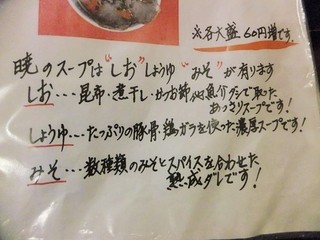 各大盛60円増です。
暁のスープは"しお"しょうゆ"みそ"が有ります
しお…昆布・煮干し・かつお節の魚介ダシで取った
あっさりスープです!
しょうゆ…たっぷりの豚骨・鶏ガラを使った濃厚スープです!
みそ…数種類のみそとスパイスを合わせた
熟成ダレです!